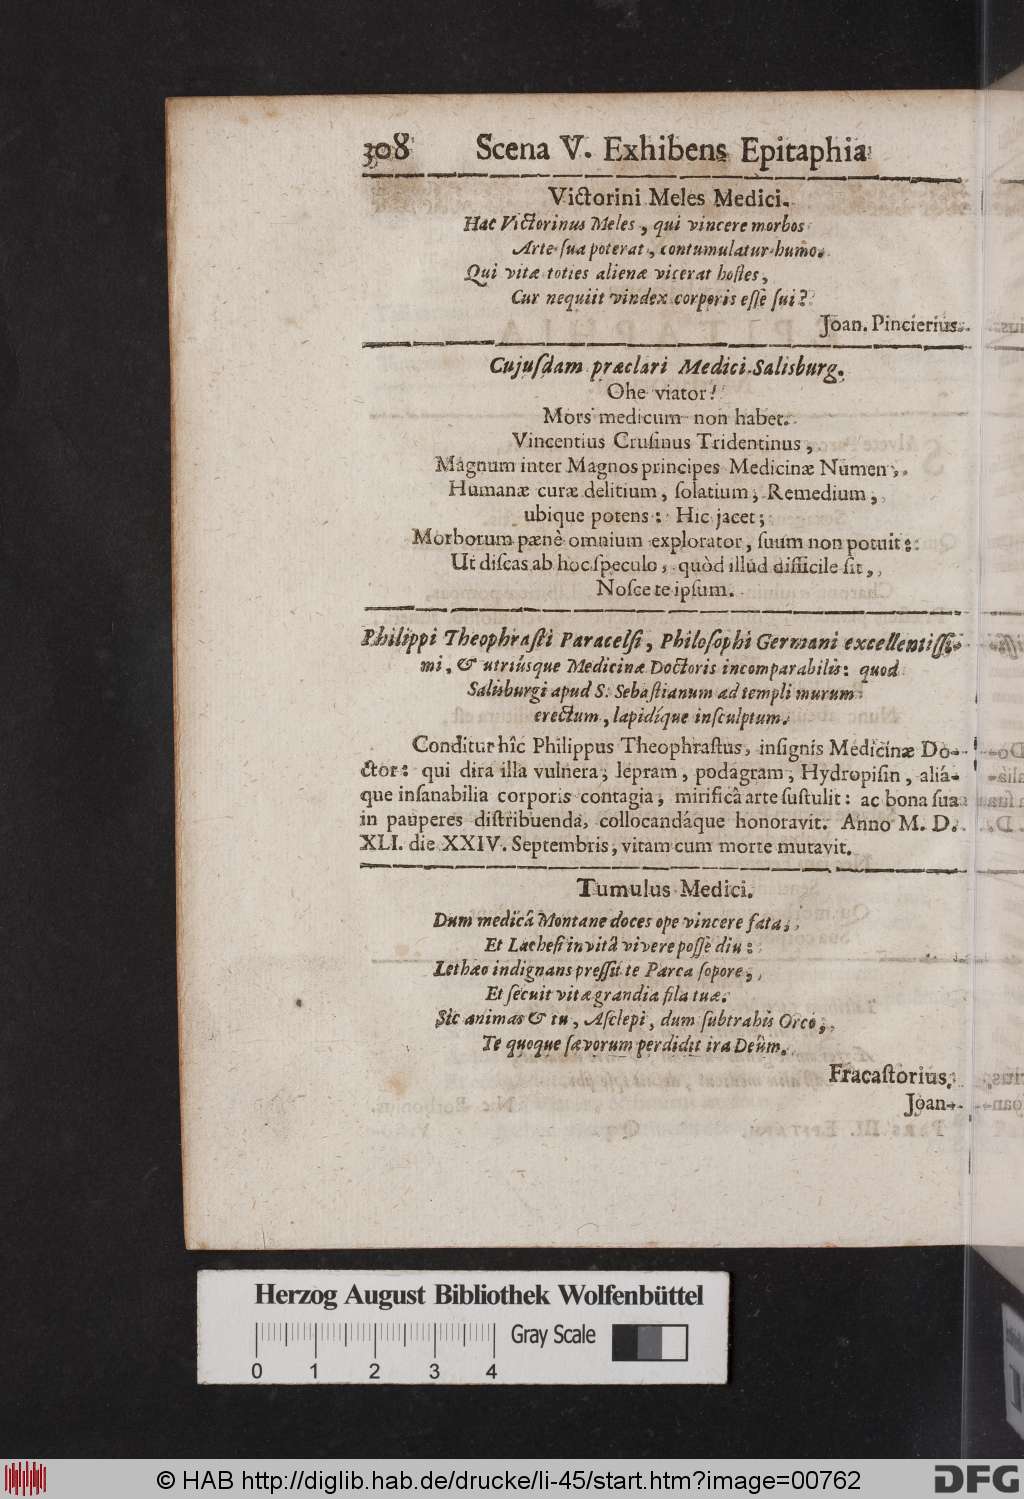 308 Scena V. Exhibens Epitaphia
Victorini Meles Medici.
Hac Victorinus Meles, qui vincere morbos
Arte ſua poterat, contumulatur humo.
Qui vitæ toties alienæ vicerat hoſtes,
Cur nequiit vindex corporis eſſe ſui?
Joan. Pincierius.
Cujuſdam præclari Medici Salisburg.
Ohe viator!
Mors medicum non habet.
Vincentius Cruſinus Tridentinus,
Magnum inter Magnos principes Medicinæ Numen,
Humanæ curæ delitium, ſolatium, Remedium,
ubique potens: Hic jacet;
Morborum pænè omnium explorator, ſuum non potuit:
Ut diſcas ab hoc ſpeculo, quòd illud difficile ſit,
Noſce te ipſum.
Philippi Theophraſti Paracelſi, Philoſophi Germani excellentiſſi-
mi, & utriúsque Medicinæ Doctoris incomparabilis: quod
Salisburgi apud S. Sebaſtianum ad templi murum
erectum, lapidíque inſculptum.
Conditur hîc Philippus Theophraſtus, inſignis Medicinæ Do-
ctor: qui dira illa vulnera, lepram, podagram, Hydropiſin, aliá-
que inſanabilia corporis contagia, mirificâ arte ſuſtulit: ac bona ſua
in pauperes diſtribuenda, collocandáque honoravit. Anno M. D.
XLI. die XXIV. Septembris, vitam cum morte mutavit.
Tumulus Medici.
Dum medicâ Montane doces ope vincere fata,
Et Lacheſi invitâ vivere poſſe diu:
Lethæo indignans preſſit te Parca ſopore,
Et ſecuit vitæ grandia fila tuæ.
Sic animas & tu, Aſclepi, dum ſubtrahis Orco,
Te quoque ſævorum perdidit ira Deûm.
Fracaſtorius.
Joan-
Herzog August Bibliothek Wolfenbüttel
Gray Scale
0 1 2 3 4
© HAB http://diglib.hab.de/drucke/li-45/start.htm?image=00762
DFG